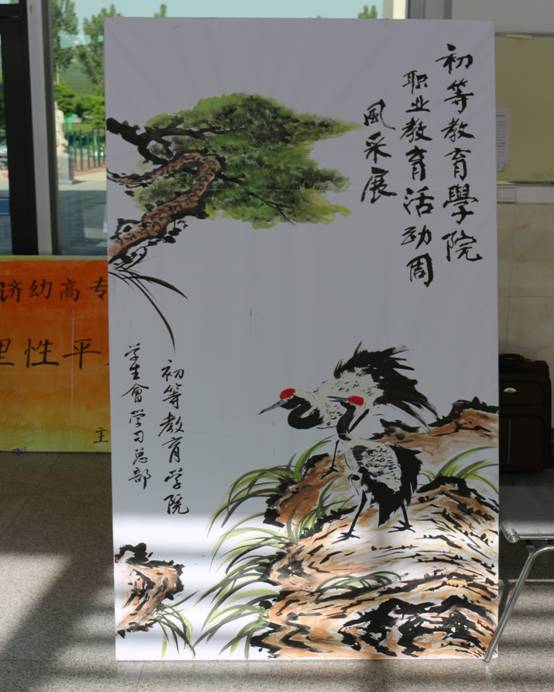 初等教育學院
职业教育活动周
风采展
初等教育学院
学生會学习总部
济幼高专
里性平
主